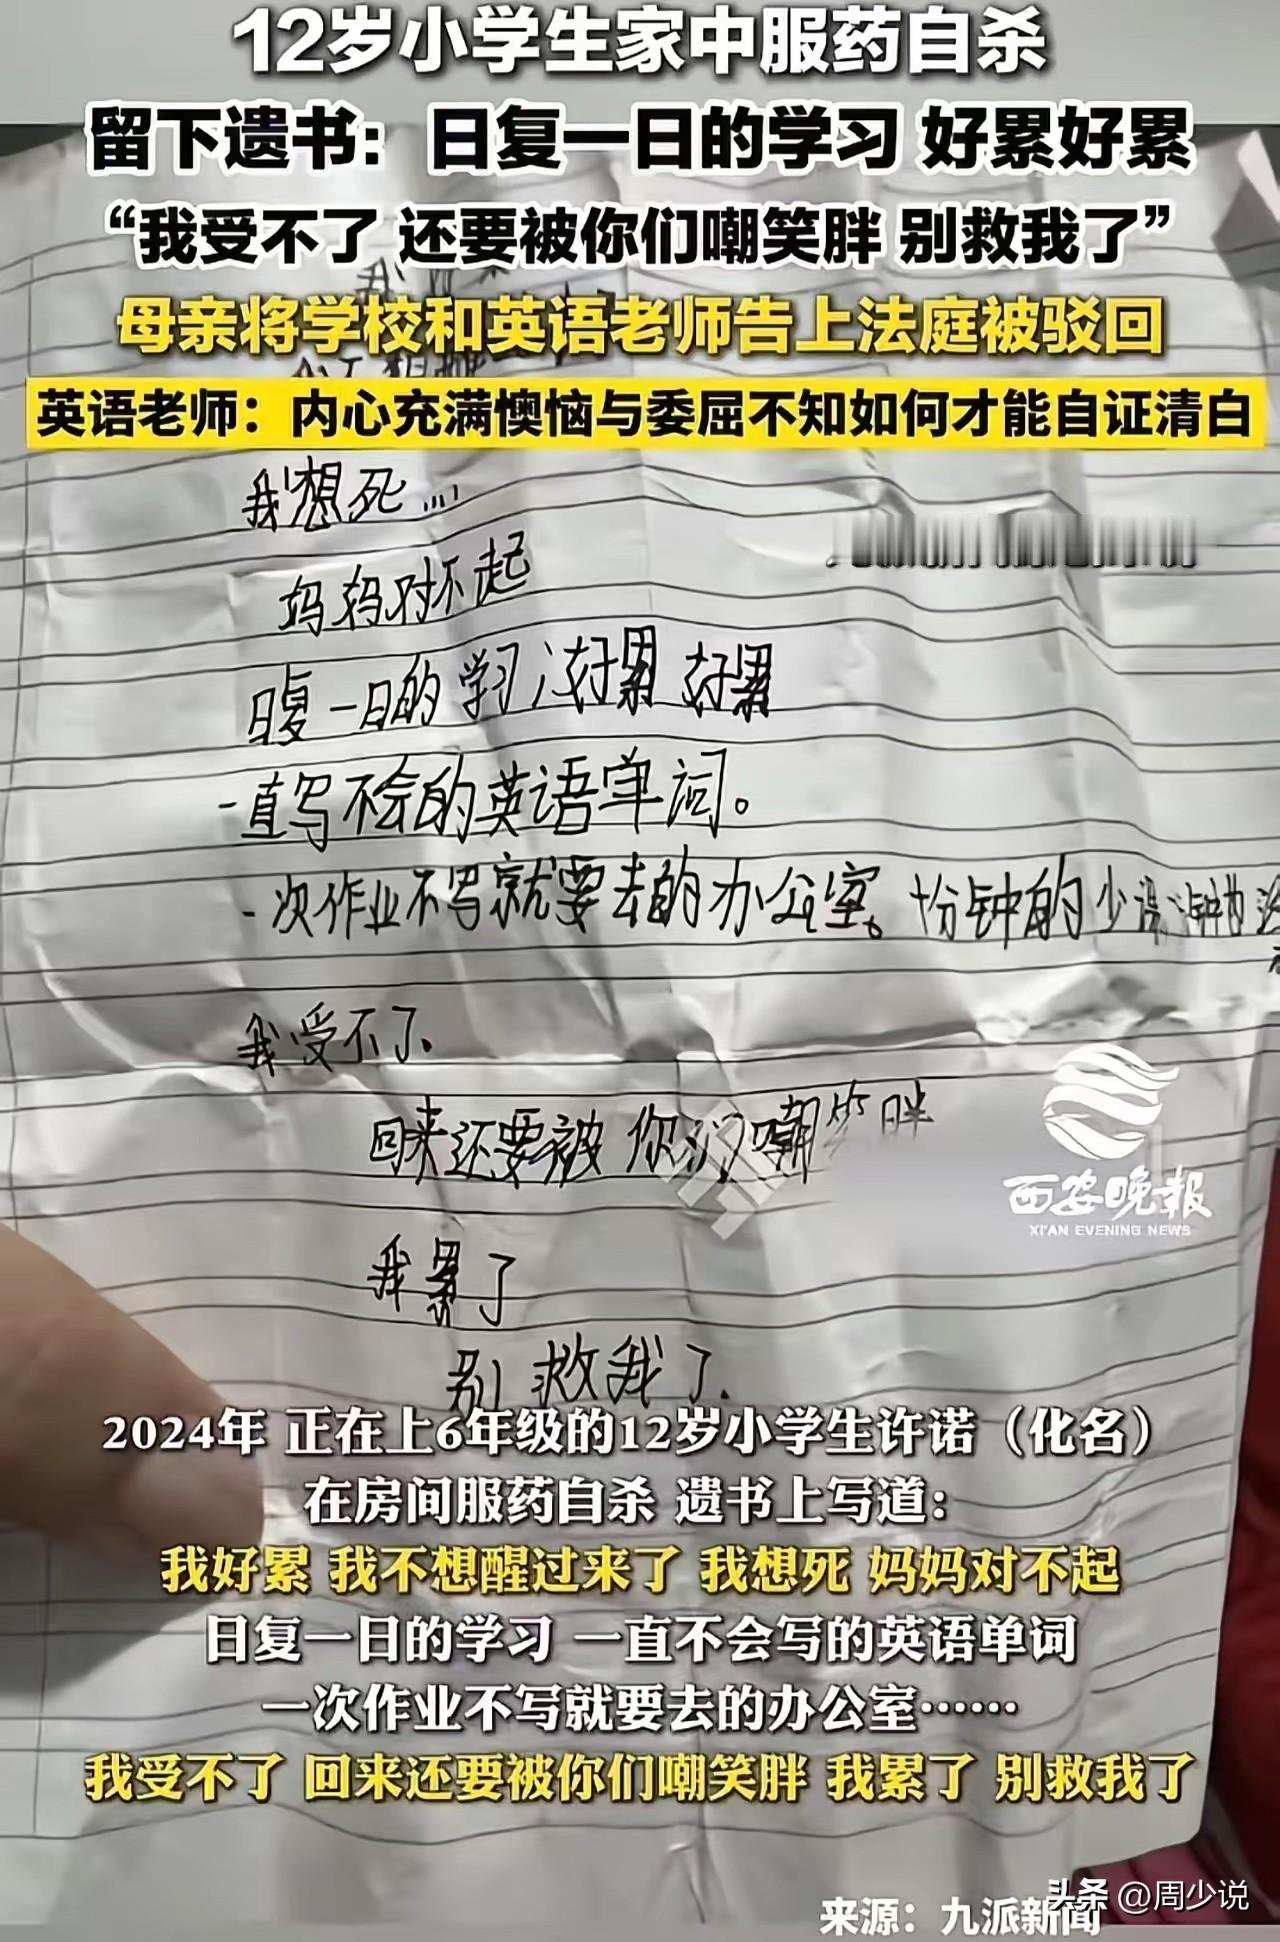 12岁小学生家中服药自杀
留下遗书：日复一日的学习 好累好累
“我受不了 还要被你们嘲笑胖 别救我了”
母亲将学校和英语老师告上法庭被驳回
英语老师：内心充满懊恼与委屈不知如何才能自证清白
我想死...
妈妈对不起
日复一日的学习，好累 好累
一直写不会的英语单词。
一次作业不写就要去的办公室。十分钟的少
我受不了.
回来还要被你们嘲笑胖
我累了
别救我了.
西安晚报
XI'AN EVENING NEWS
2024年 正在上6年级的12岁小学生许诺（化名）
在房间服药自杀 遗书上写道：
我好累 我不想醒过来了 我想死 妈妈对不起
日复一日的学习 一直不会写的英语单词
一次作业不写就要去的办公室……
我受不了 回来还要被你们嘲笑胖 我累了 别救我了
头条 @周少说
来源：九派新闻